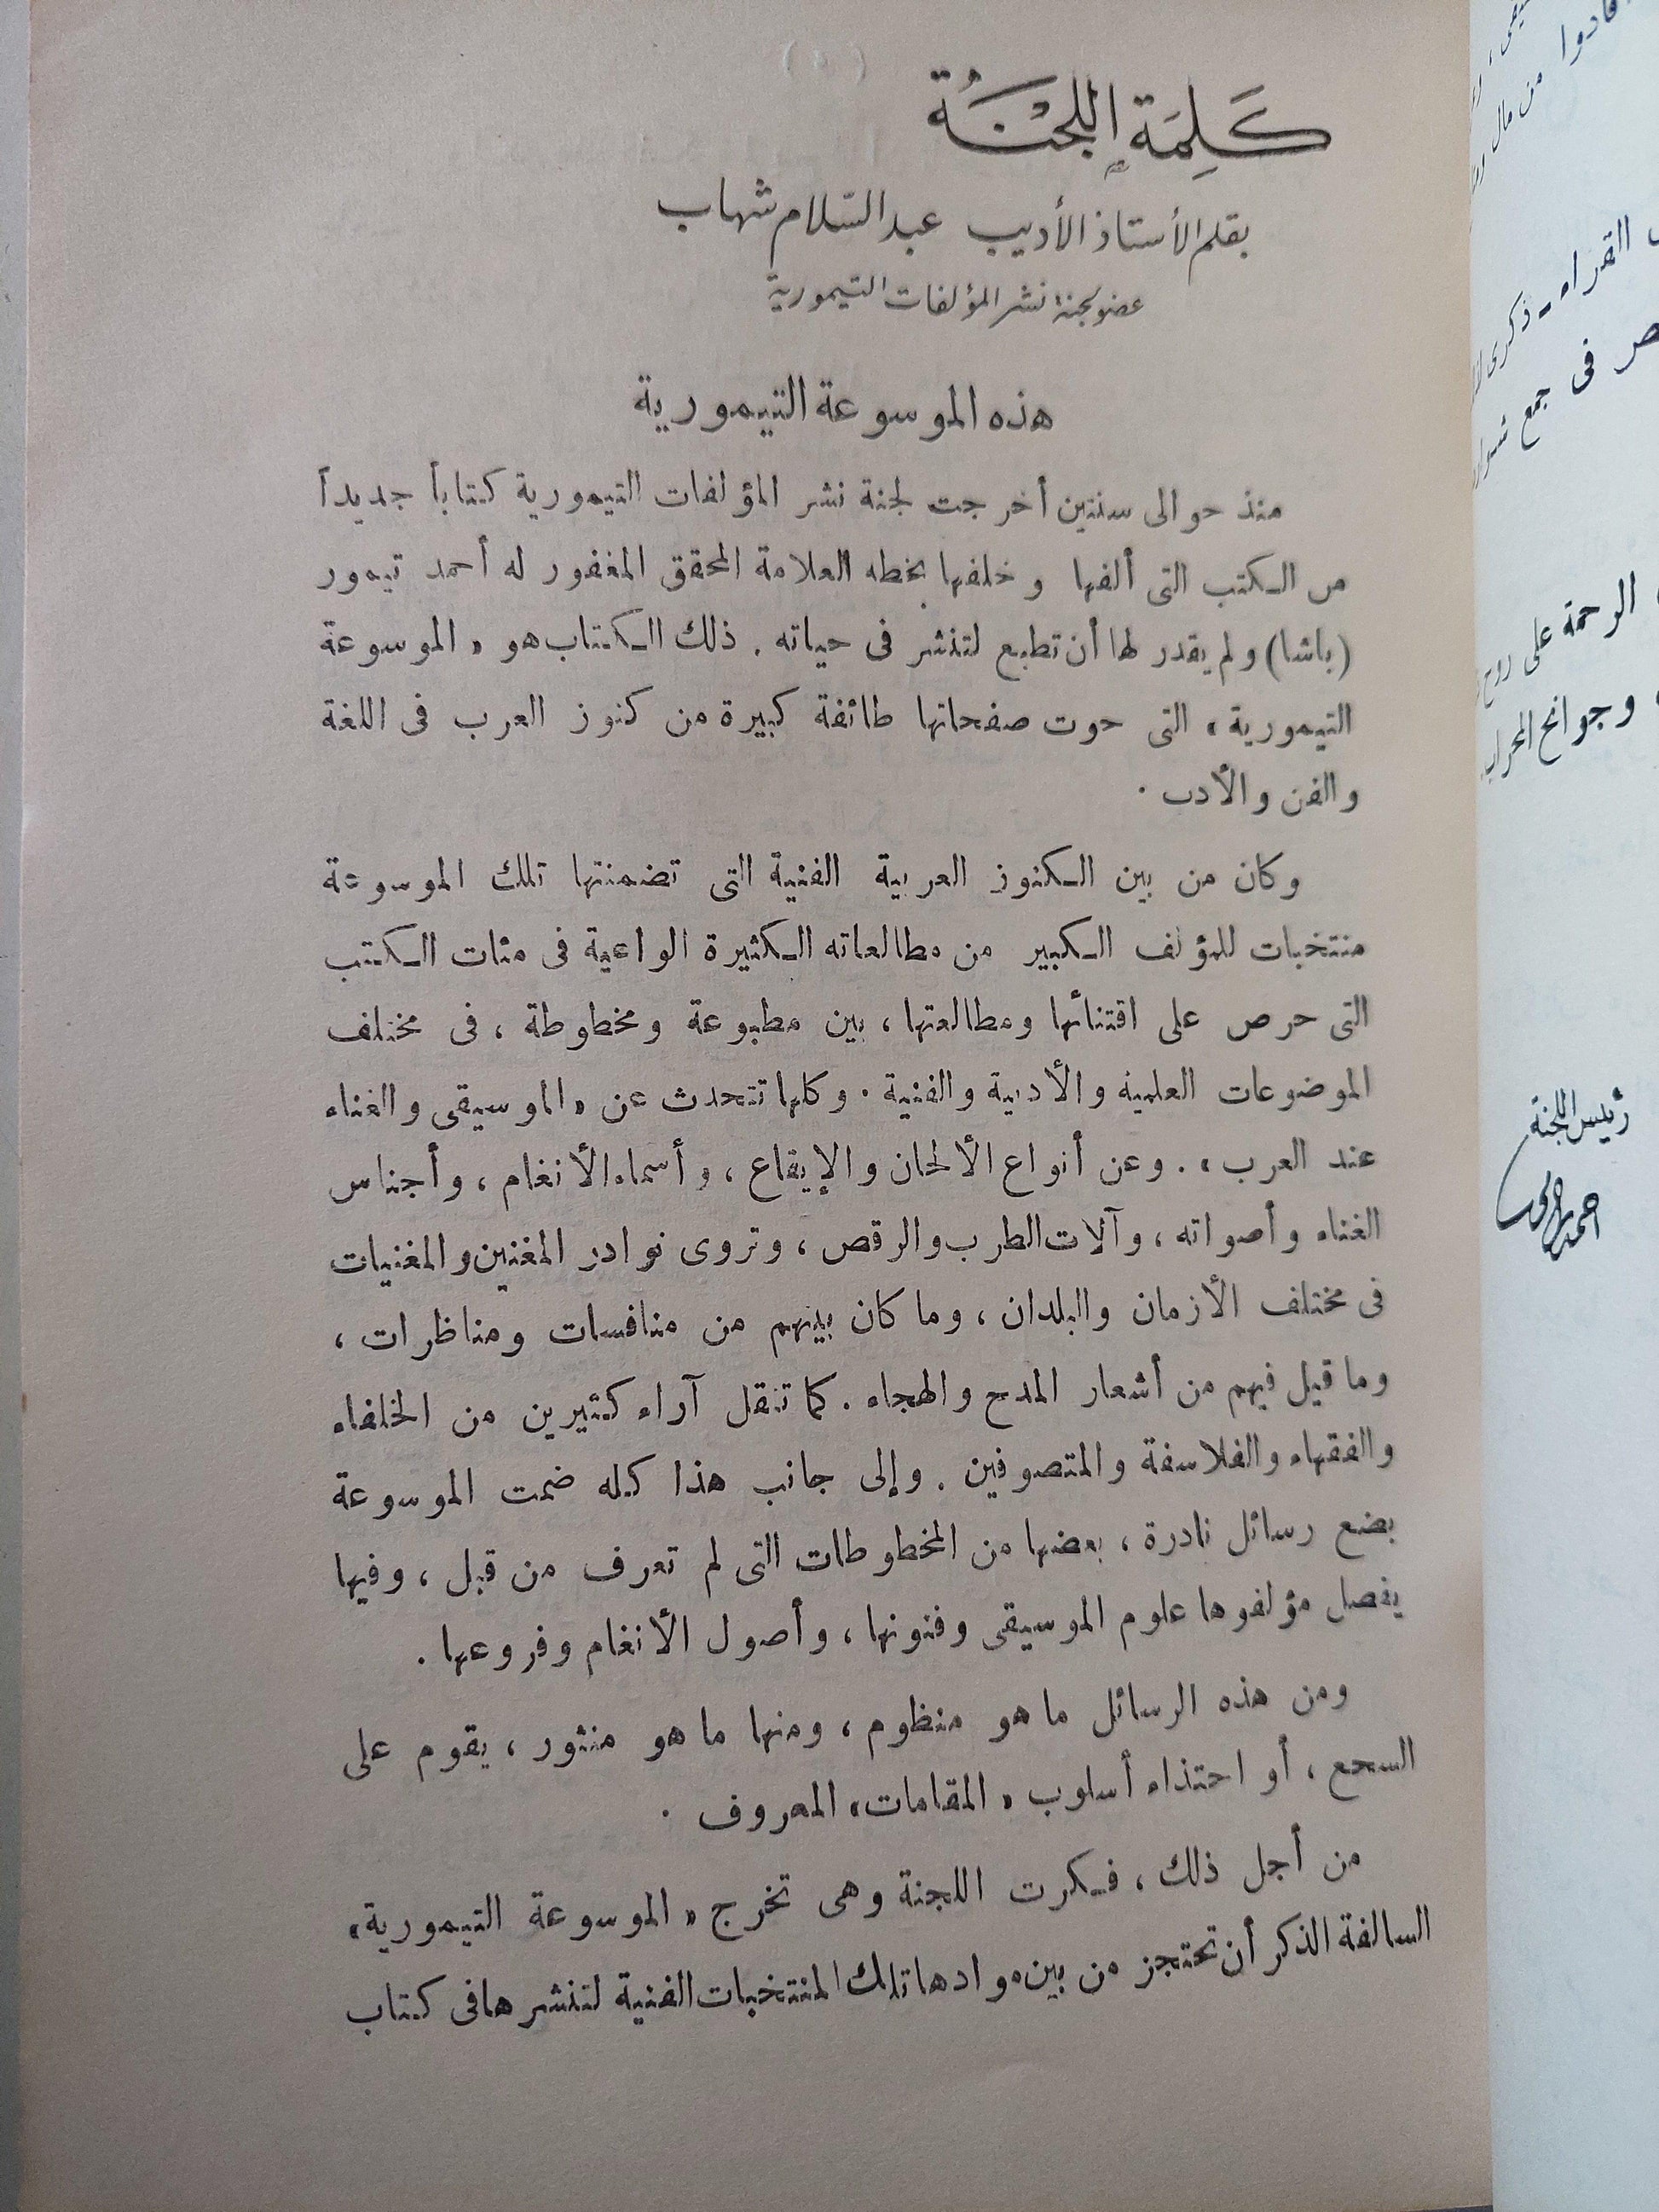 كَلِمَة اللجْنَة
بقلم الأستاذ الأديب عبد السّلام شهاب
عضو لجنة نشر المؤلفات التيمورية
هذه الموسوعة التيمورية
منذ حوالى سنتين أخرجت لجنة نشر المؤلفات التيمورية كتاباً جديداً
من الكتب التى ألفها وخلفها بخطه العلامة المحقق المغفور له أحمد تيمور
(باشا) ولم يقدر لها أن تطبع لتنشر فى حياته . ذلك الكتاب هو « الموسوعة
التيمورية » التى حوت صفحاتها طائفة كبيرة من كنوز العرب فى اللغة
والفن والأدب .
وكان من بين الكنوز العربية الفنية التى تضمنتها تلك الموسوعة
منتخبات للمؤلف الكبير من مطالعاته الكثيرة الواعية فى مئات الكتب
التى حرص على اقتنائها ومطالعتها ، بين مطبوعة ومخطوطة ، فى مختلف
الموضوعات العلمية والأدبية والفنية . وكلها تتحدث عن « الموسيقى والغناء
عند العرب » . وعن أنواع الألحان والإيقاع ، وأسماء الأنغام ، وأجناس
الغناء وأصواته ، وآلات الطرب والرقص ، وتروى نوادر المغنين والمغنيات
فى مختلف الأزمان والبلدان ، وما كان بينهم من منافسات ومناظرات ،
وما قيل فيهم من أشعار المدح والهجاء . كما تنقل آراء كثيرين من الخلفاء
والفقهاء والفلاسفة والمتصوفين . وإلى جانب هذا كله ضمت الموسوعة
بضع رسائل نادرة ، بعضها من المخطوطات التى لم تعرف من قبل ، وفيها
يفصل مؤلفوها علوم الموسيقى وفنونها ، وأصول الأنغام وفروعها .
ومن هذه الرسائل ما هو منظوم ، ومنها ما هو منثور ، يقوم على
السجع ، أو احتذاء أسلوب « المقامات » المعروف .
من أجل ذلك ، فكرت اللجنة وهى تخرج « الموسوعة التيمورية »
السالفة الذكر أن تحتجز من بين موادها تلك المنتخبات الفنية لتنشرها فى كتاب
من مال
القراء - ذكرى
فى جمع
الرحمة على روح
وجوانح
رئيس اللجنة